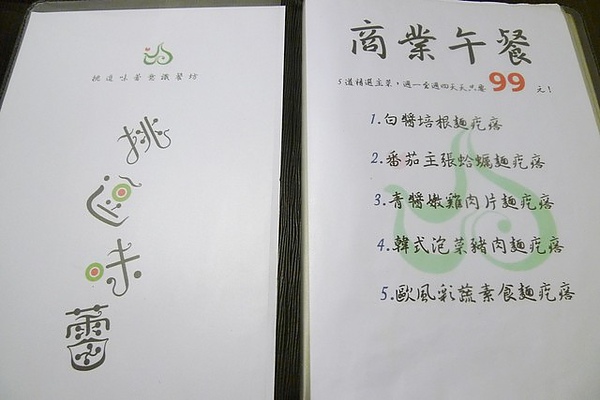 挑逗味蕾意識餐坊
挑
逗
味
蕾
商業午餐
5道精選主菜，週一至週四天天只要99元！
1.白醬培根麵疙瘩
2.番茄主張蛤蠣麵疙瘩
3.青醬嫩雞肉片麵疙瘩
4.韓式泡菜豬肉麵疙瘩
5.歐風彩蔬素食麵疙瘩